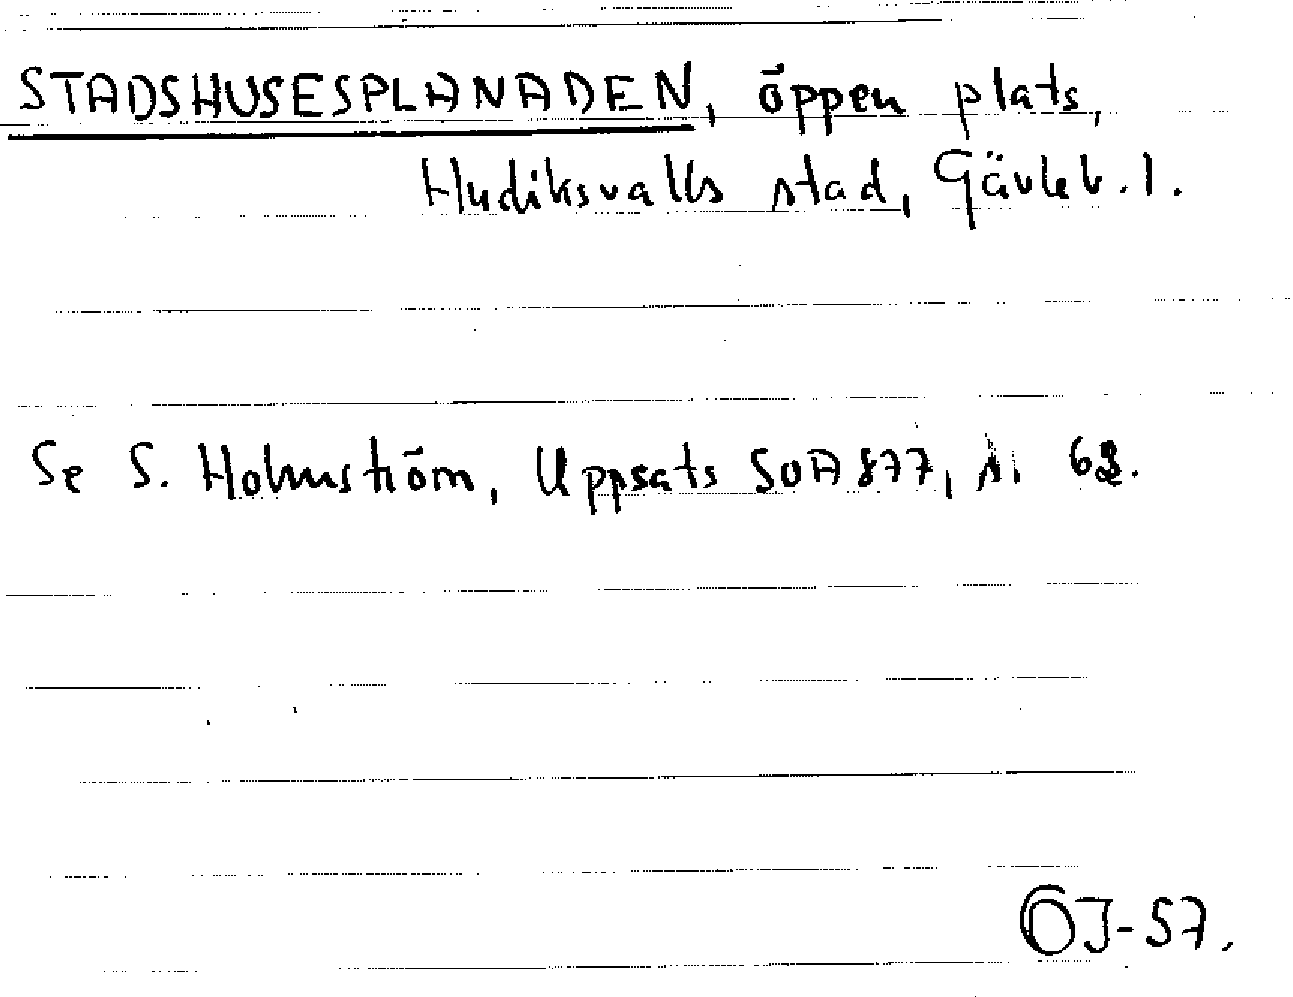 STADSHUSESPLANADEN, öppen plats,
Hudiksvalls stad, Gävleb. l.
Se S. Holmström, Uppsats SOA 877, s.
OJ-57.